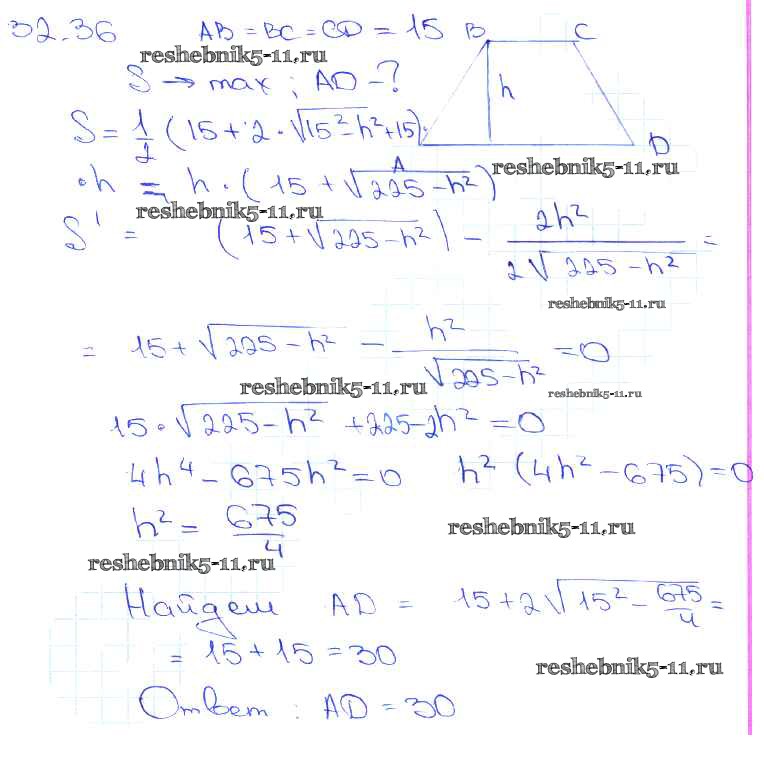 32.36 AB = BC = CD = 15 B C
reshebnik5-11.ru
S → max ; AD - ?
h
S = 1/2 (15 + 2 · √(15² - h²) + 15) ·
D
A
reshebnik5-11.ru
· h = h · (15 + √(225 - h²))
reshebnik5-11.ru
S' = (15 + √(225 - h²)) - 2h²/(2√(225 - h²)) =
reshebnik5-11.ru
= 15 + √(225 - h²) - h²/√(225 - h²) = 0
reshebnik5-11.ru
reshebnik5-11.ru
15 · √(225 - h²) + 225 - 2h² = 0
4h⁴ - 675h² = 0 h² (4h² - 675) = 0
h² = 675/4
reshebnik5-11.ru
reshebnik5-11.ru
Найдем AD = 15 + 2√(15² - 675/4) =
= 15 + 15 = 30
reshebnik5-11.ru
Ответ : AD = 30